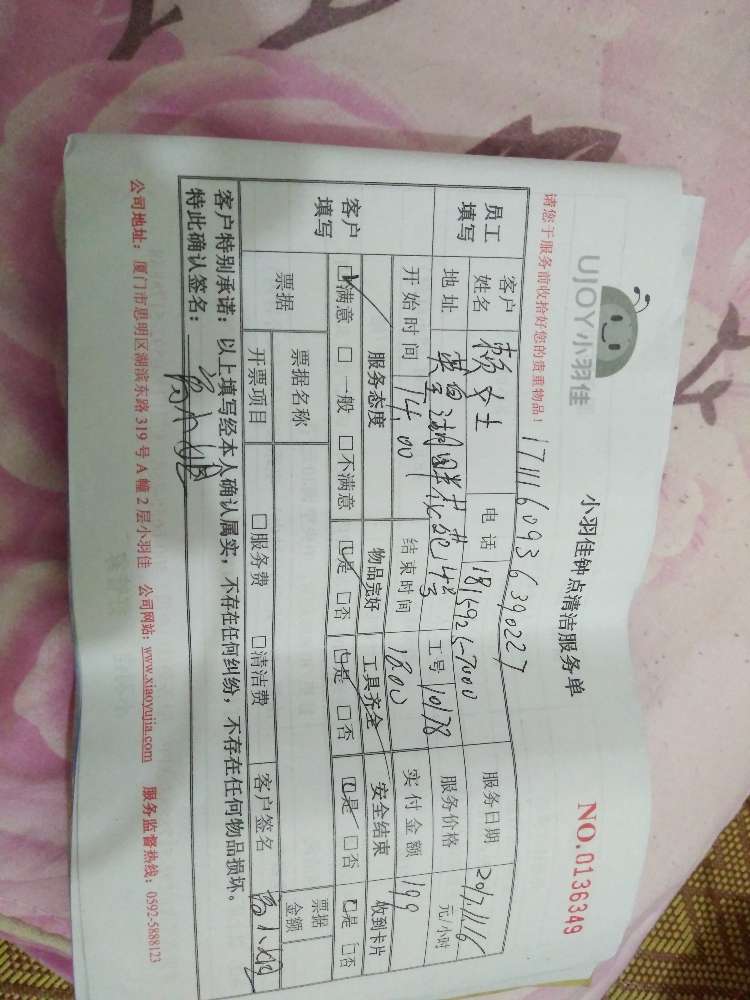 UJOY小羽佳
小羽佳钟点清洁服务单
NO.0136349
请您于服务前收拾好您的贵重物品！
1711160936390227
员工填写
客户姓名 杨女士 电话 服务日期 2017.11.16
地址 工号 10178 服务价格 元/小时
开始时间 14:00 结束时间 18:00 实付金额 199
客户填写
服务态度 物品完好 工具齐全 安全结束 收到卡片
☑满意 □一般 □不满意 ☑是 □否 ☑是 □否 ☑是 □否 ☑是 □否
票据 票据名称 票据金额
开票项目 □服务费 □清洁费 客户签名
客户特别承诺：以上填写经本人确认属实，不存在任何纠纷，不存在任何物品损坏。
特此确认签名：
公司地址：厦门市思明区湖滨东路319号A幢2层小羽佳 公司网站：www.xiaoyujia.com 服务监督热线：0592-5888123